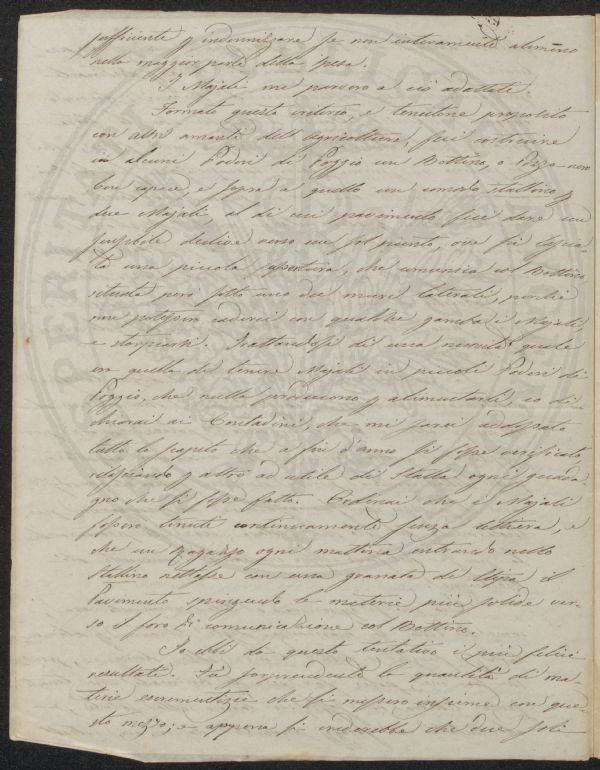 sufficiente p indennizzare se non interamente almeno
nella maggior parte della spesa.
I Majali me parvero a ciò adattati.
Formato questo criterio, e tenutone proposito
con altri amanti dell'agricoltura, feci costruire
in alcuni Poderi di Poggio un Bottino, o Pozzo-nero
ben capace, e sopra a quello un comodo stallino p
due Majali, al di cui pavimento feci dare un
sensibile declive verso un sol punto, ove fu lascia-
ta una piccola apertura, che comunica col Bottino
situata però sotto uno dei muri laterali, perchè
non potessero caderci con qualche gamba i Majali,
e storpiarsi. Trattandosi di una novità quale
era quella di tenere Majali in piccoli Poderi di
Poggio, che nulla producono p alimentarli, io di-
chiarai ai Contadini, che mi sarei addossato
tutto lo scapito che a fin d'anno si fosse verificato
rilasciando p altro ad utile di Stalla ogni guada-
gno che si fosse fatto. Ordinai che i Majali
fossero tenuti continuamente senza lettiera, e
che un ragazzo ogni mattina entrando nello
Stallino nettasse con una granata di Stipa il
Pavimento spingendo le materie più solide ver-
so il foro di comunicazione col Bottino.
Io ebbi da questo tentativo il più felice
resultato. Fu sorprendente la quantità di ma-
terie escrementizie che si messero insieme con que-
sto mezzo; e appena si crederebbe che due soli